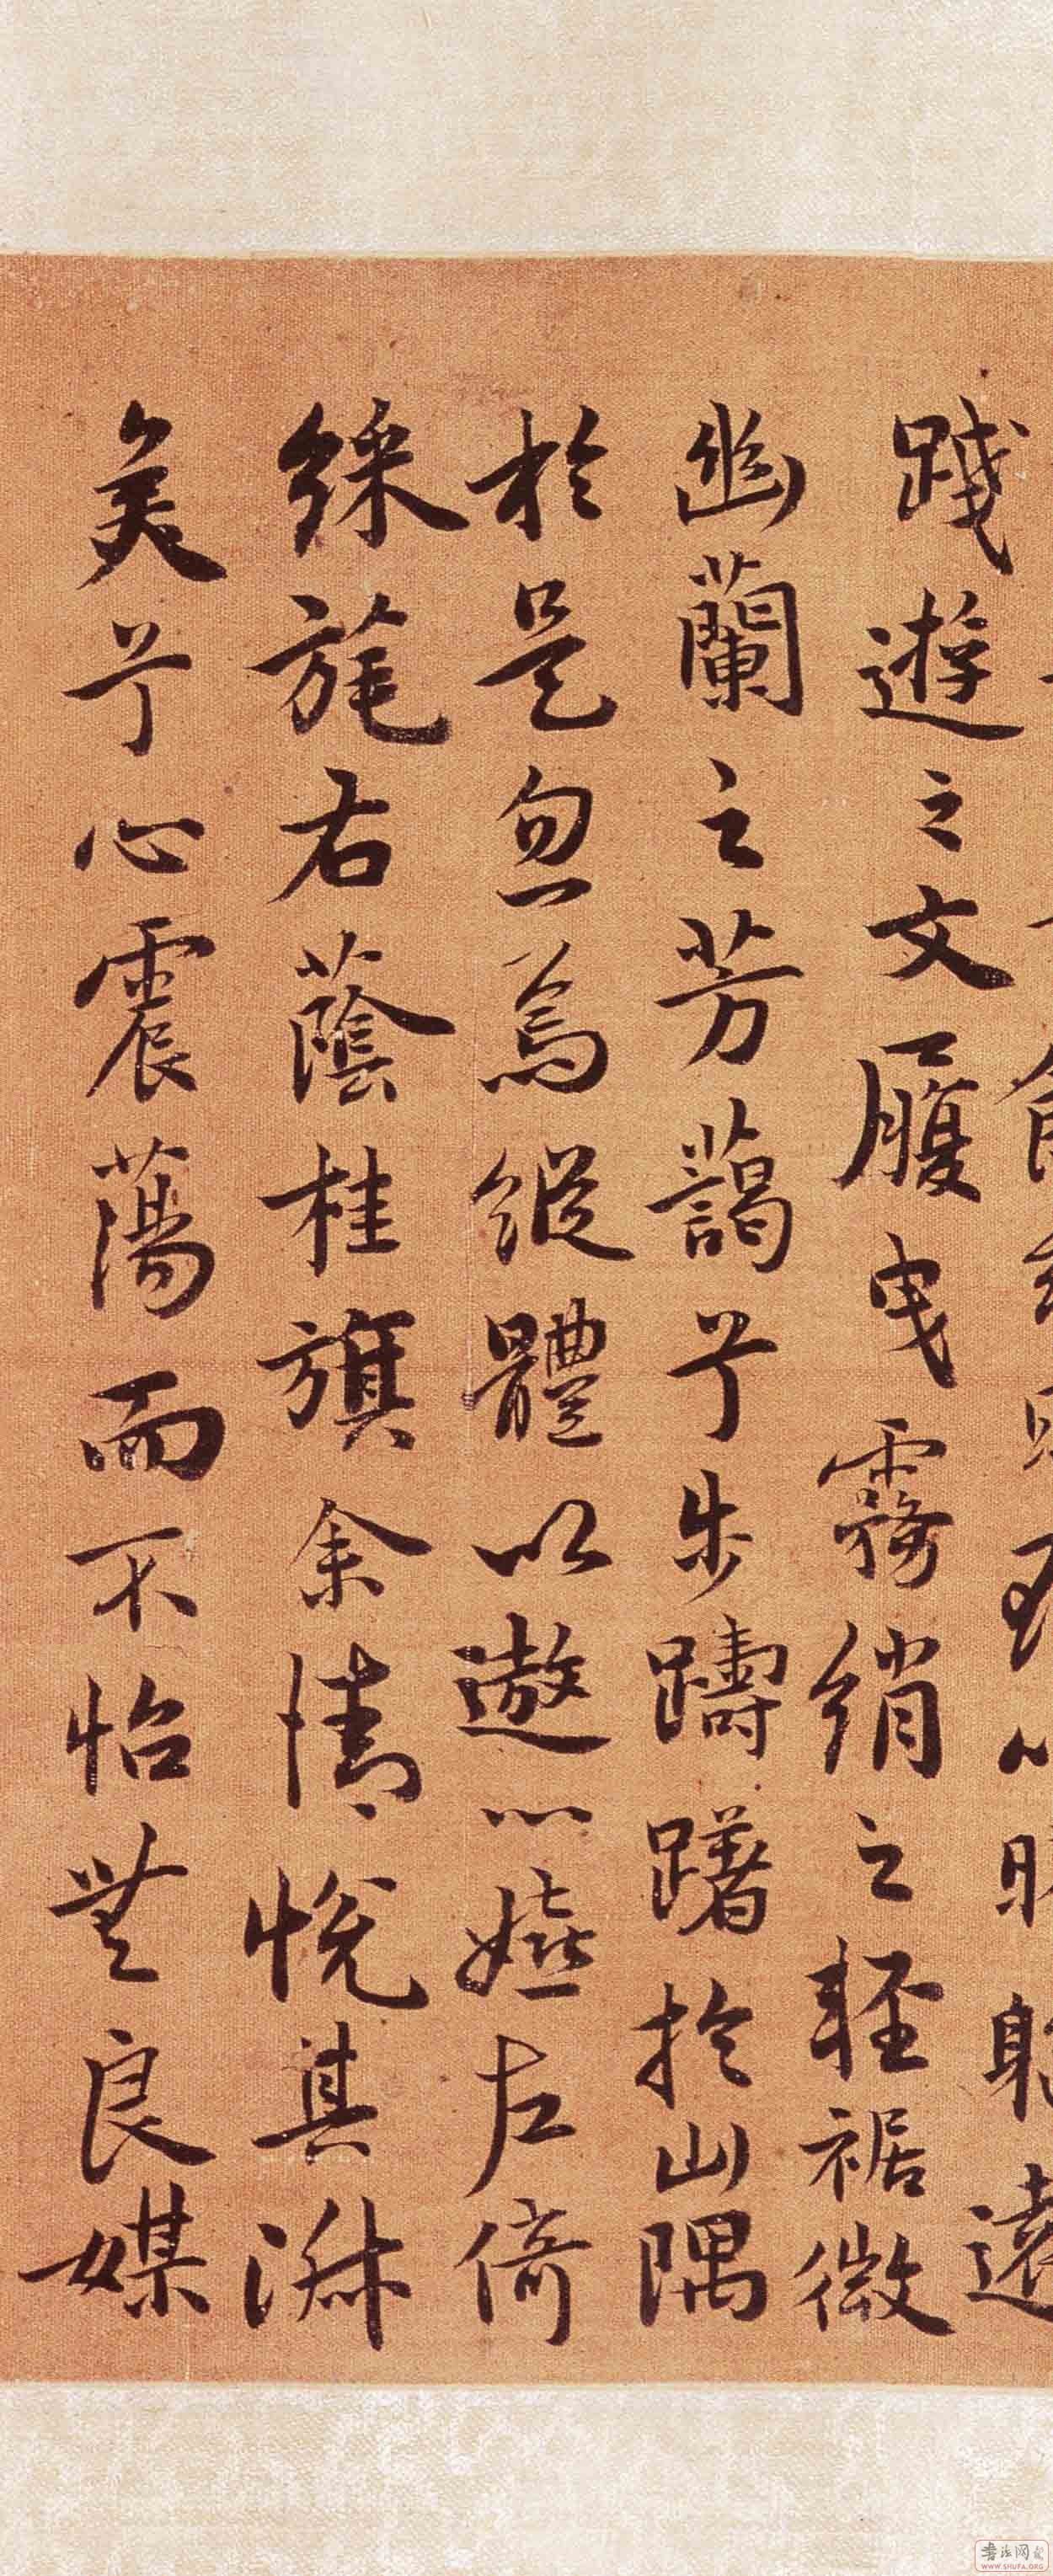 遠
踐遊之文履曳霧綃之輕裾微
幽蘭之芳藹兮步躊躇於山隅
於是忽焉縱體以遨以嬉左倚
綵旄右蔭桂旗余情悅其淑
美兮心震蕩而不怡無良媒
WWW.SHUFA.ORG